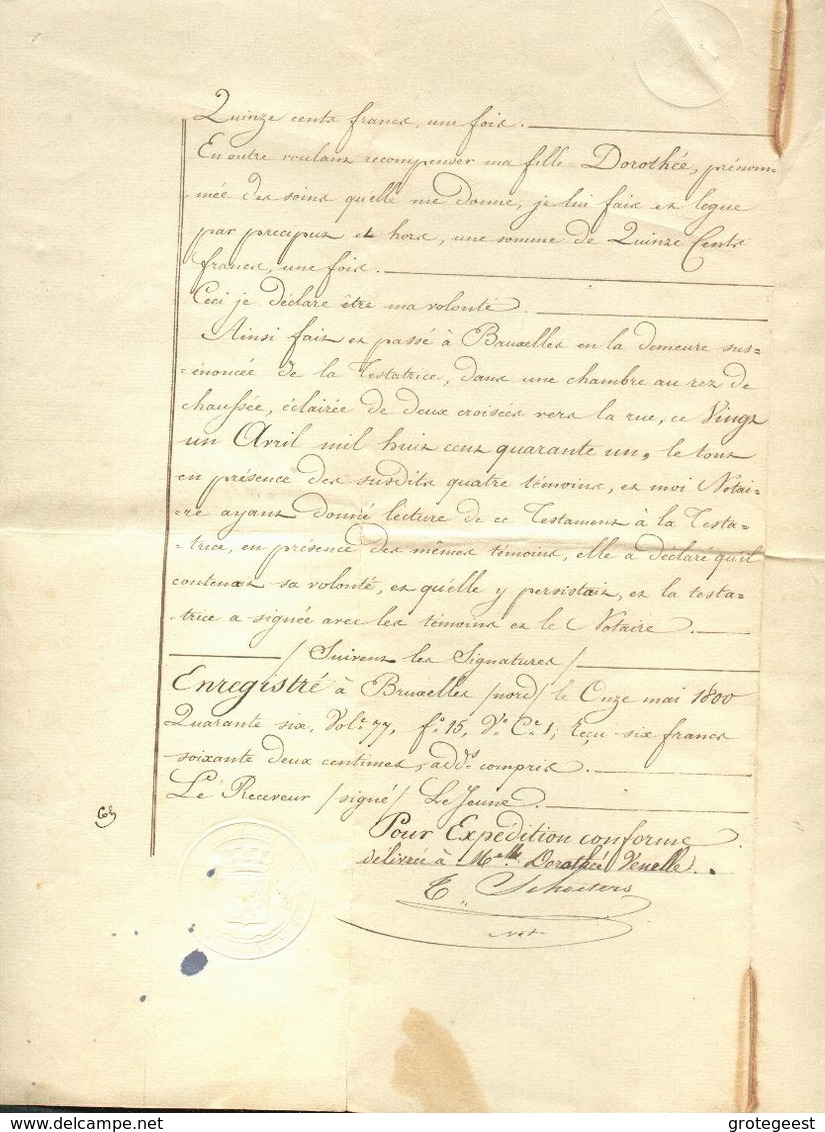 Quinze cents francs, une fois.
En outre voulant recompenser ma fille Dorothée, prénom=
mée des soins qu'elle me donne, je lui fais et legue
par preciput et hors, une somme de Quinze Cents
francs, une fois.
Ceci je déclare être ma volonté.
Ainsi fait et passé à Bruxelles en la demeure sus=
=énoncée de la Testatrice, dans une chambre au rez de
chaussée, éclairée de deux croisées vers la rue, ce Vingt
un Avril mil huit cent quarante un, le tout
en présence des susdits quatre témoins, et moi Notai=
=re ayant donné lecture de ce Testament à la Testa=
=trice, en présence des mêmes témoins, elle a déclaré qu'il
contenait sa volonté, et qu'elle y persistait, et la testa=
trice a signée avec les témoins et le Notaire.
/ Suivent les Signatures /
Enregistré à Bruxelles /nord/ le Onze mai 1800
Quarante six, Vol: 77, f.º 15, Vº Cº 1, reçu six francs
soixante deux centimes, add.s compris.
Le Receveur /signé/ Le Jeune.
Pour Expedition conforme
délivrée à Melle Dorothée Venelle.
Schoeters
Not
delcampe.net
grotegeest